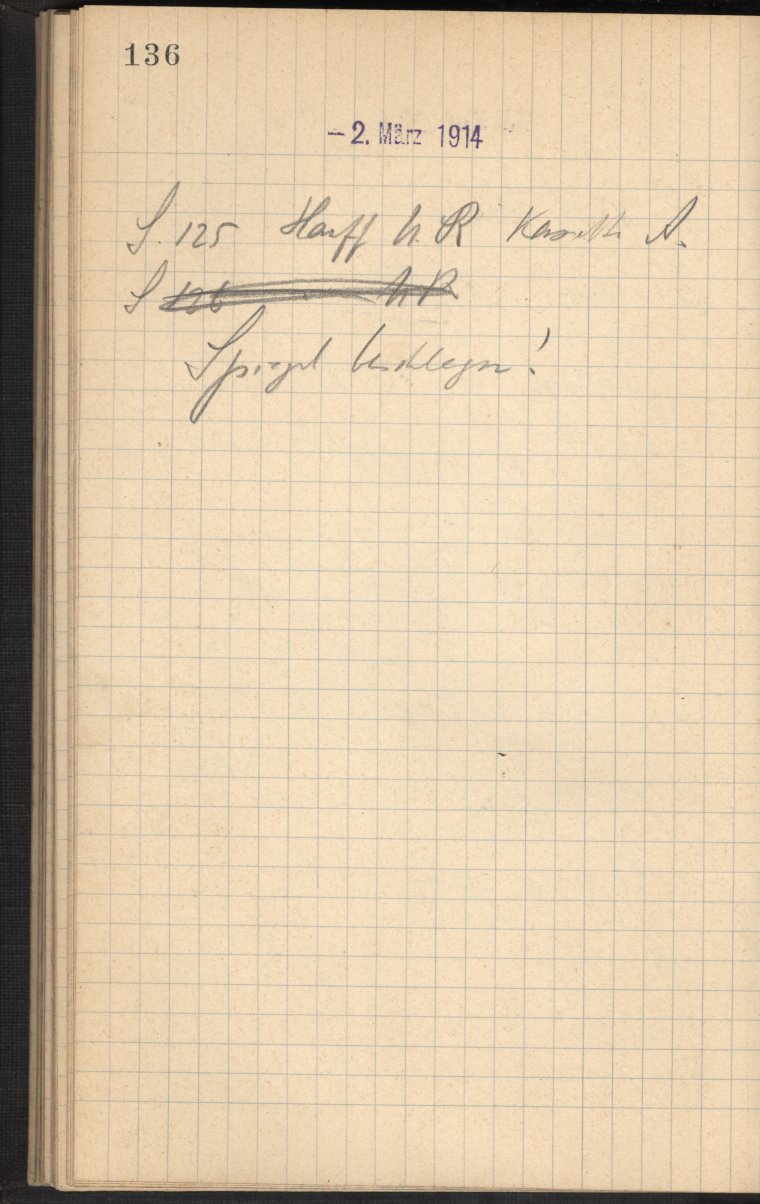 136
- 2. März 1914
S. 125 Harff N. R. Kassette A.
S 126 N R
Spiegel beschlagen!